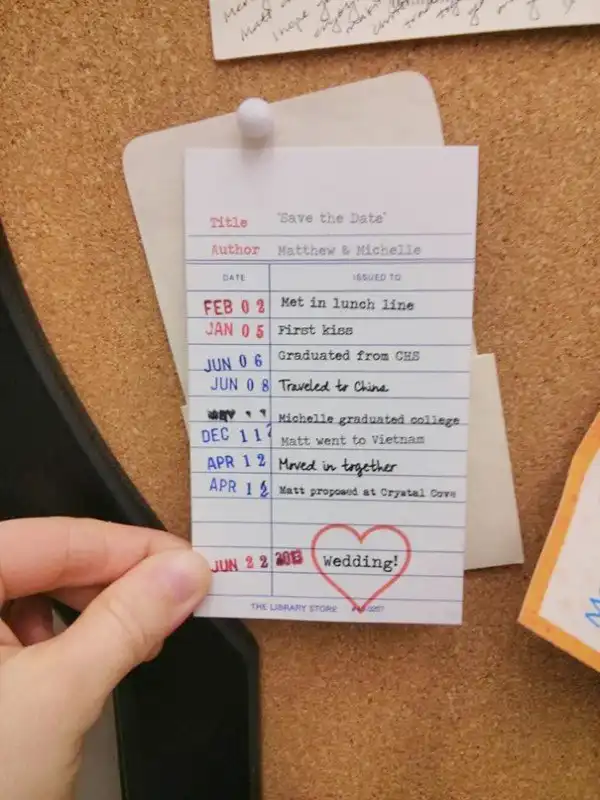 Title "Save the Date"
Author Matthew & Michelle
DATE ISSUED TO
FEB 02 Met in lunch line
JAN 05 First kiss
JUN 06 Graduated from CHS
JUN 08 Traveled to China
MAY Michelle graduated college
DEC 11 Matt went to Vietnam
APR 12 Moved in together
APR 12 Matt proposed at Crystal Cove
JUN 22 2013 Wedding!
THE LIBRARY STORE